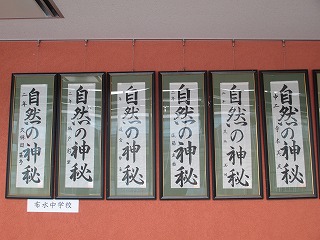 自然の神秘
二年
自然の神秘
自然の神秘
自然の神秘
自然の神秘
自然の神秘
布水中学校